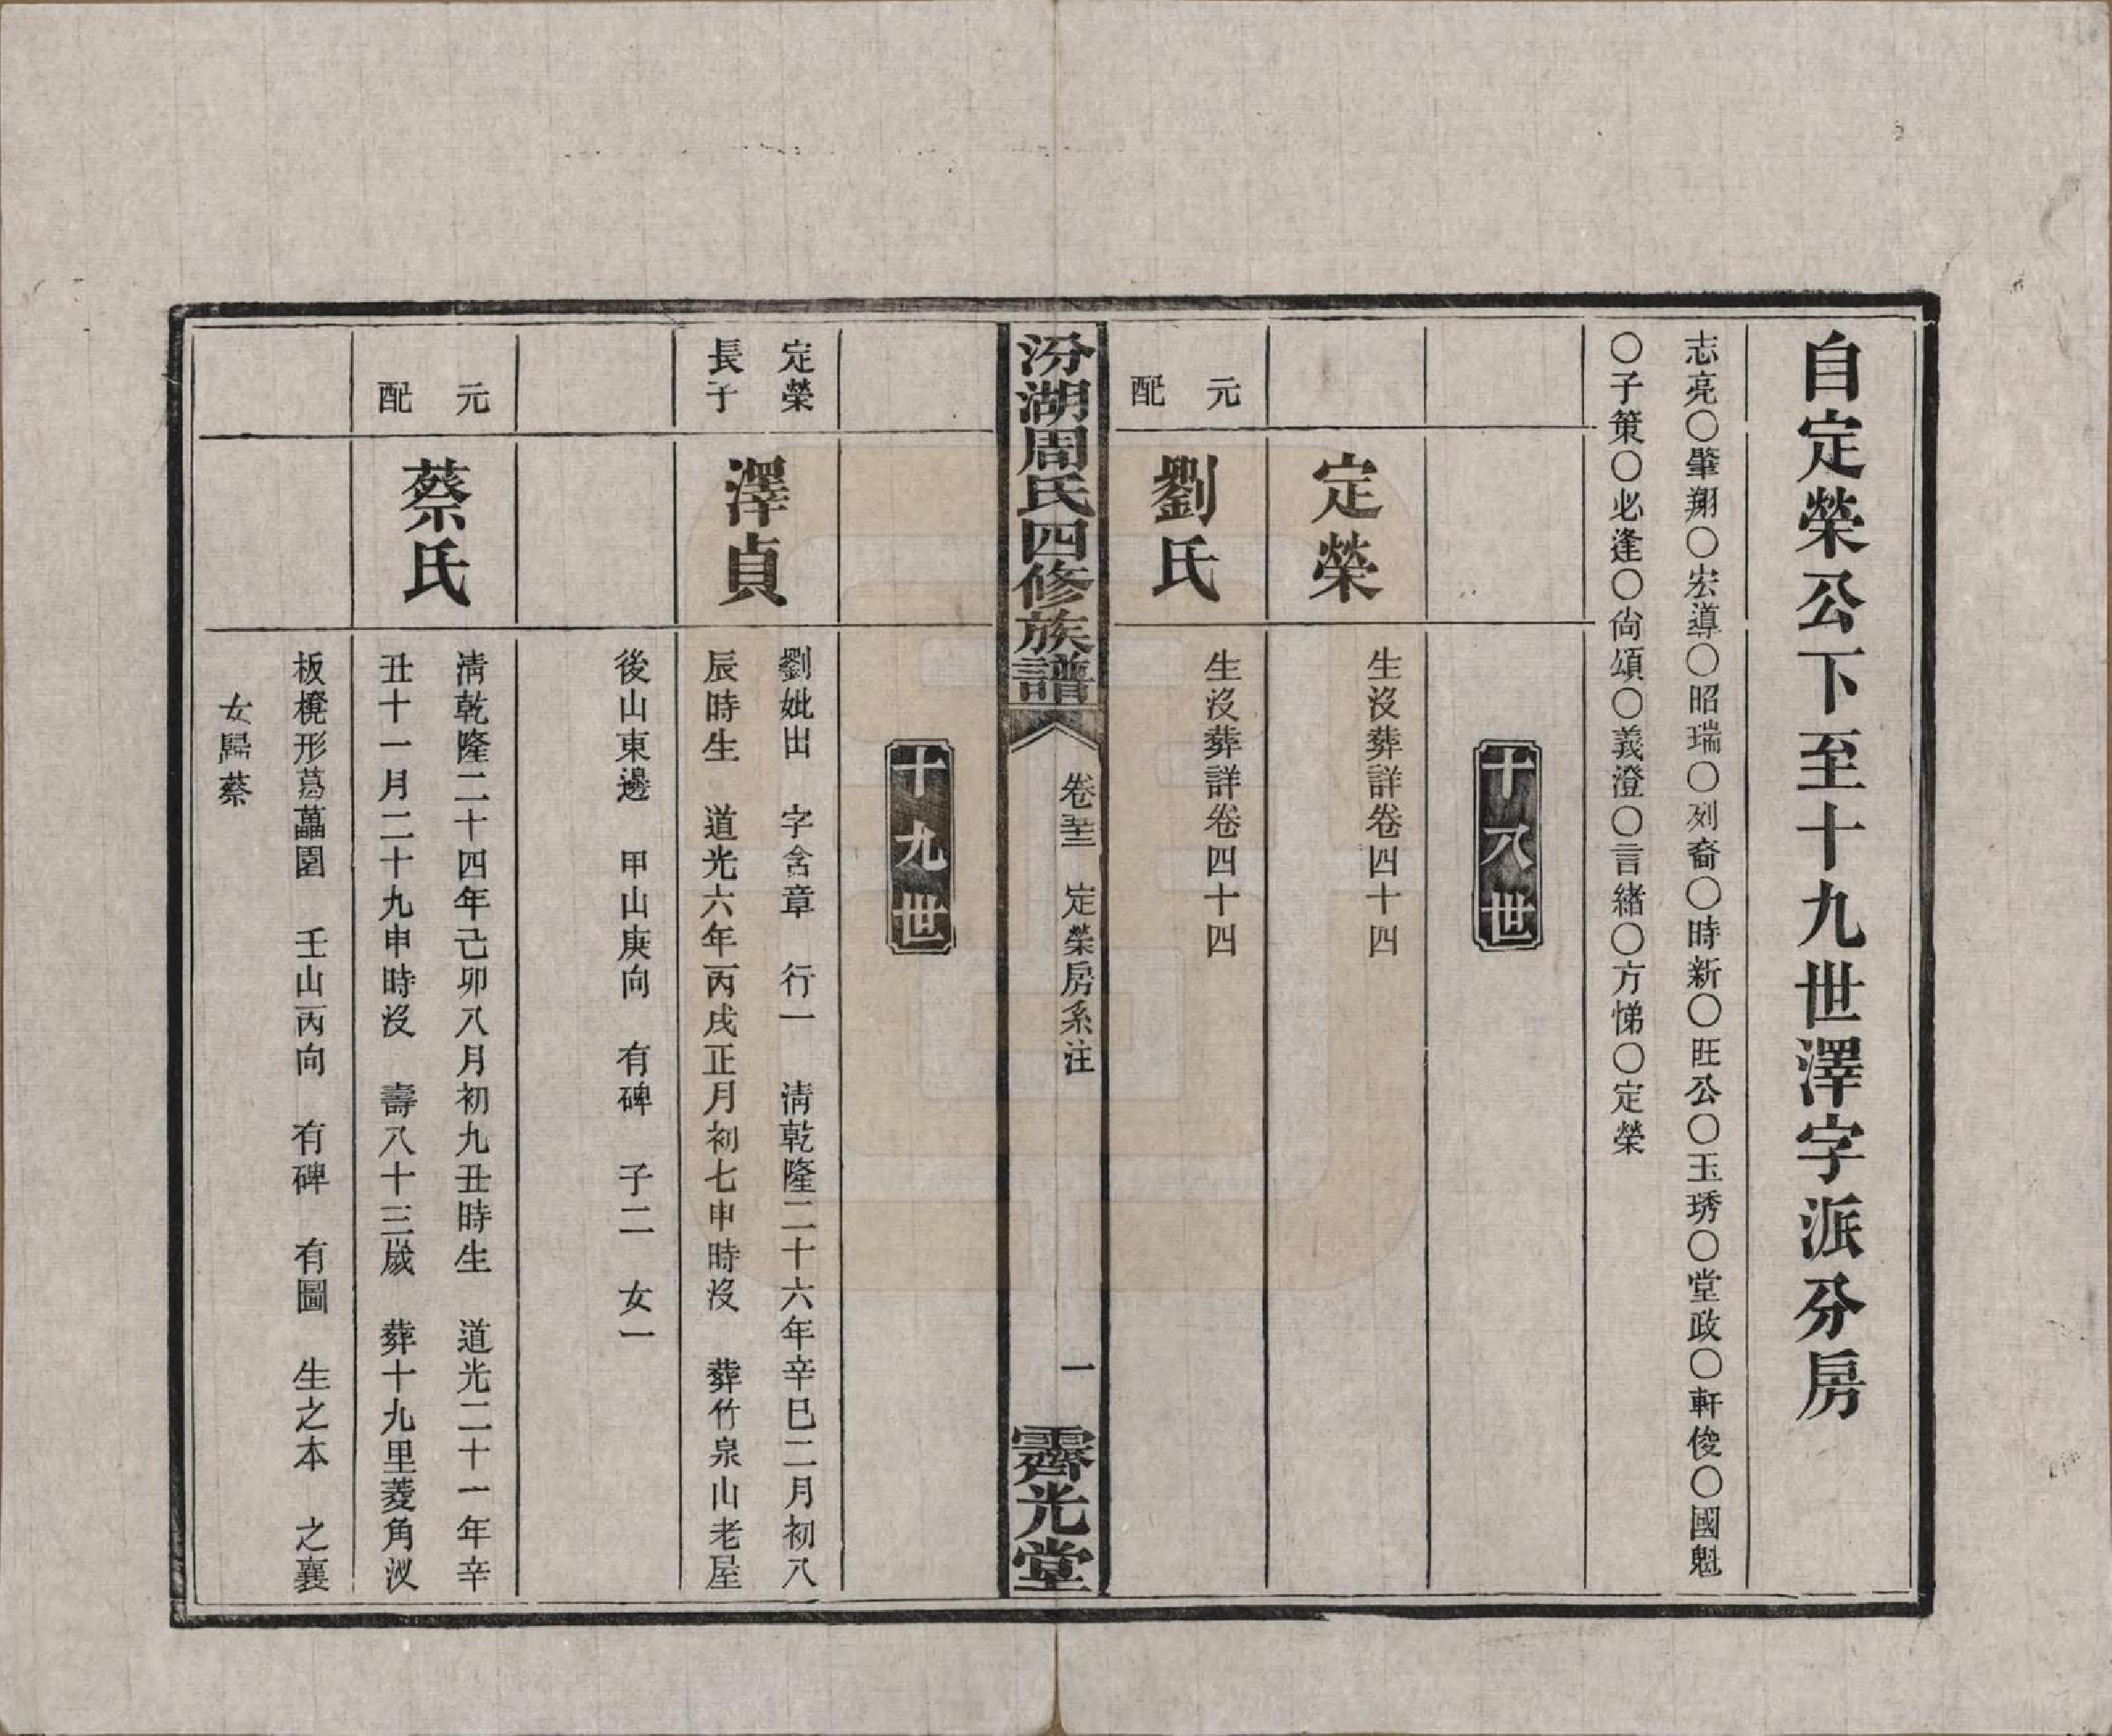 自定榮公下至十九世澤字派分房
志亮〇肇翔〇宏導〇昭瑞〇列裔〇時新〇旺公〇玉琇〇堂政〇軒俊〇國魁
〇子策〇必逢〇尙頌〇義澄〇言緒〇方悌〇定榮
十八世
定榮
生沒葬詳卷四十四
元
配
劉氏
生沒葬詳卷四十四
汾湖周氏四修族譜
卷
定榮房系注
一
霽光堂
十九世
定榮
長子
澤貞
劉妣出　字含章　行一　淸乾隆二十六年辛巳二月初八
辰時生　道光六年丙戌正月初七申時沒　葬竹泉山老屋
後山東邊　甲山庚向　有碑　子二　女一
元
配
蔡氏
淸乾隆二十四年己卯八月初九丑時生　道光二十一年辛
丑十一月二十九申時沒　壽八十三歲　葬十九里菱角汊
板櫈形葛藟園　壬山丙向　有碑　有圖　生之本　之襄
女歸蔡